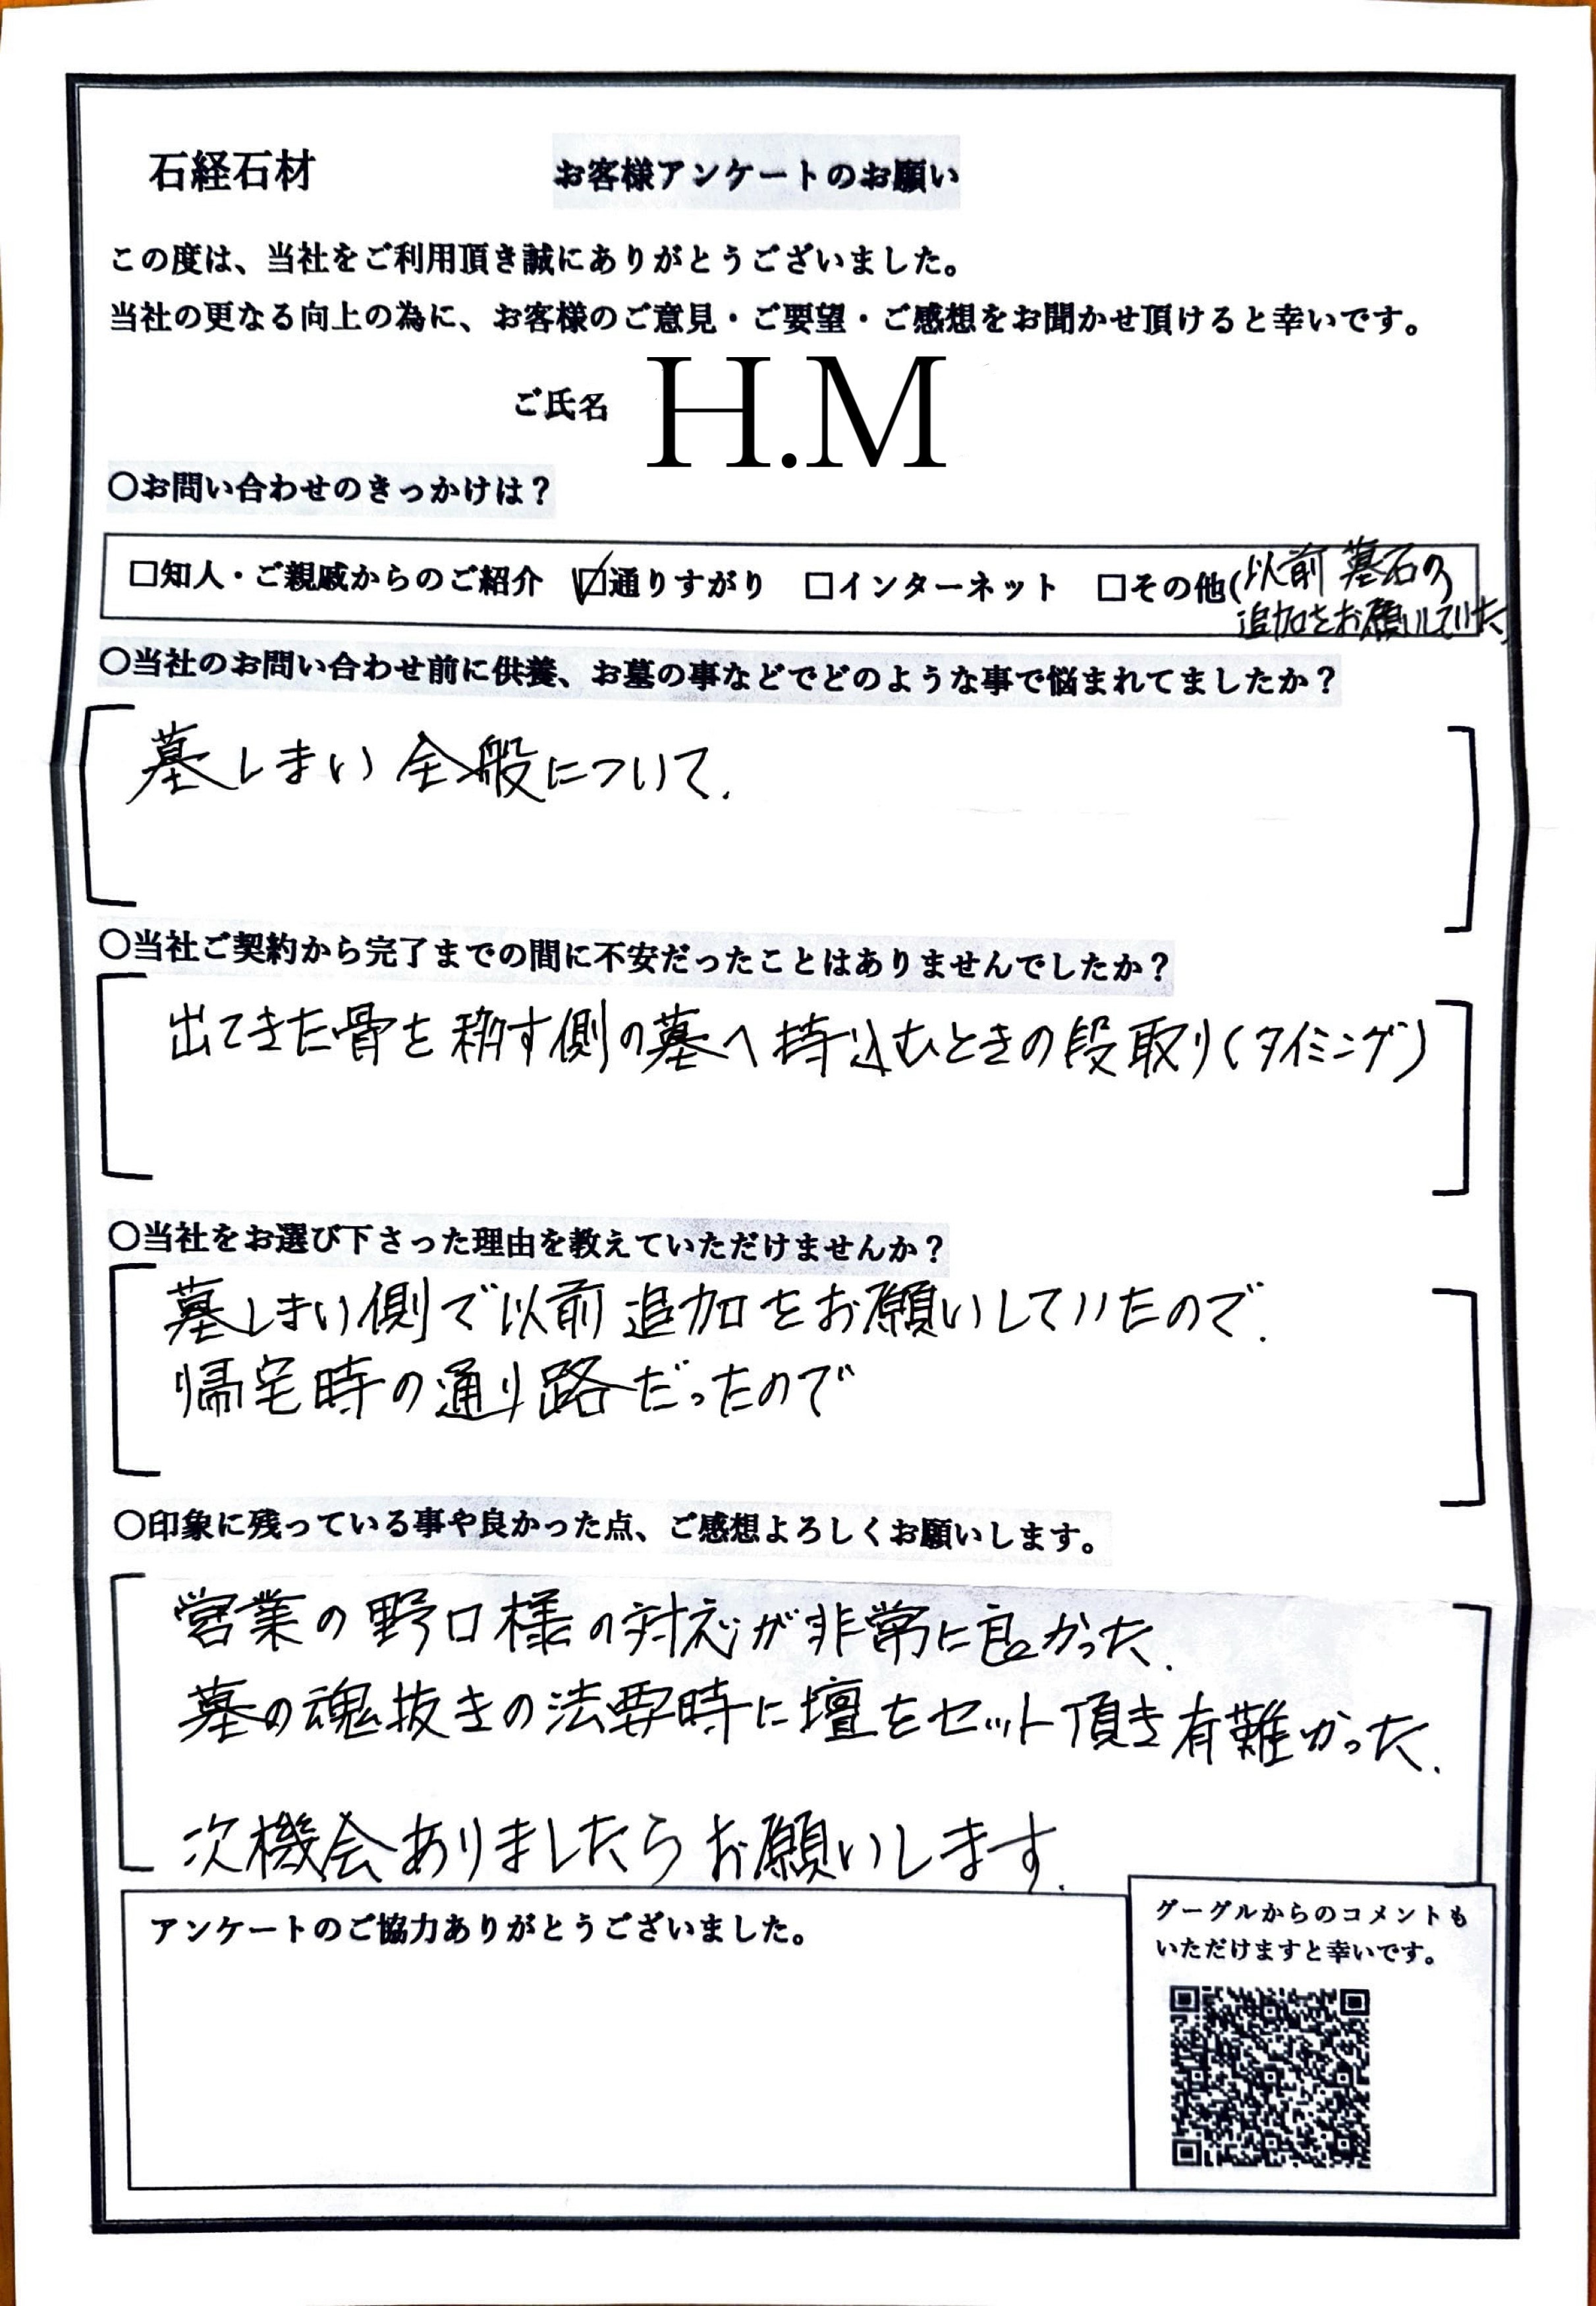 石経石材 お客様アンケートのお願い
この度は、当社をご利用頂き誠にありがとうございました。
当社の更なる向上の為に、お客様のご意見・ご要望・ご感想をお聞かせ頂けると幸いです。
ご氏名 H.M
〇お問い合わせのきっかけは？
□知人・ご親戚からのご紹介 ☑通りすがり □インターネット □その他(以前 墓石の
追加をお願いしていた)
〇当社のお問い合わせ前に供養、お墓の事などでどのような事で悩まれてましたか？
墓しまい 全般について.
〇当社ご契約から完了までの間に不安だったことはありませんでしたか？
出てきた骨を移す側の墓へ持込むときの段取り(タイミング)
〇当社をお選び下さった理由を教えていただけませんか？
墓しまい側で以前 追加をお願いしていたので.
帰宅時の通り路だったので
〇印象に残っている事や良かった点、ご感想よろしくお願いします。
営業の野口様の対応が非常に良かった.
墓の魂抜きの法要時に壇をセット頂き有難かった.
次機会ありましたらお願いします.
アンケートのご協力ありがとうございました。
グーグルからのコメントも
いただけますと幸いです。